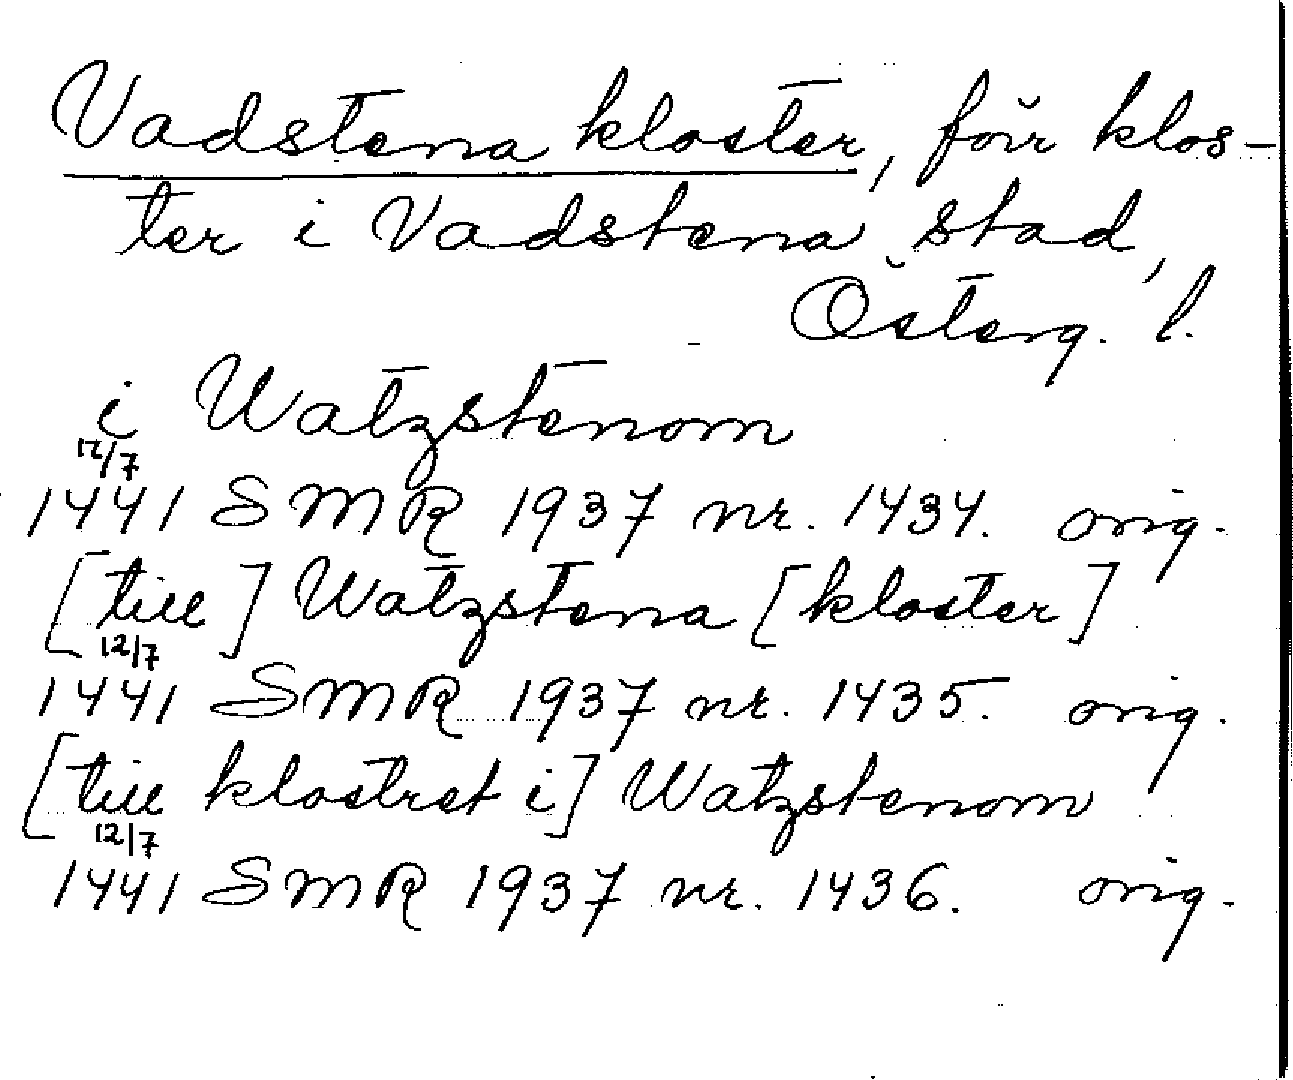 Vadstena kloster, förr klos-
ter i Vadstena stad,
Österg. l.
i Watzstenom
12/7
1441 SMR 1937 nr. 1434. orig.
[till] Watzstena [kloster]
12/7
1441 SMR 1937 nr. 1435. orig.
[till klostret i] Watzstenom
12/7
1441 SMR 1937 nr. 1436. orig.